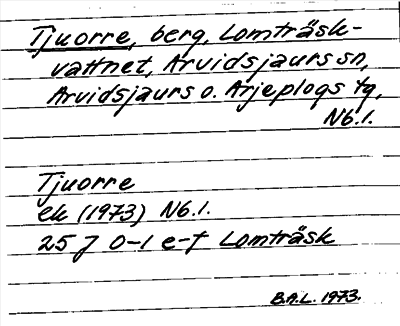 Tjuorre, berg, Lomträsk-
vattnet, Arvidsjaurs sn,
Arvidsjaurs o. Arjeplogs tg,
Nb.l.
Tjuorre
ek (1973) Nb.l.
25 J 0-1 e-f Lomträsk
B.A.L. 1973.